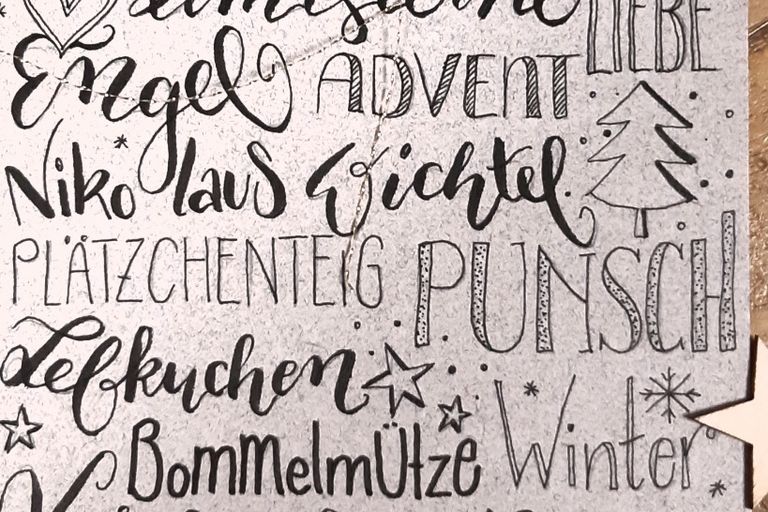 LIEBE
Engel ADVENT
Nikolaus Wichtel
PLÄTZCHENTEIG PUNSCH
Lebkuchen
Bommelmütze Winter